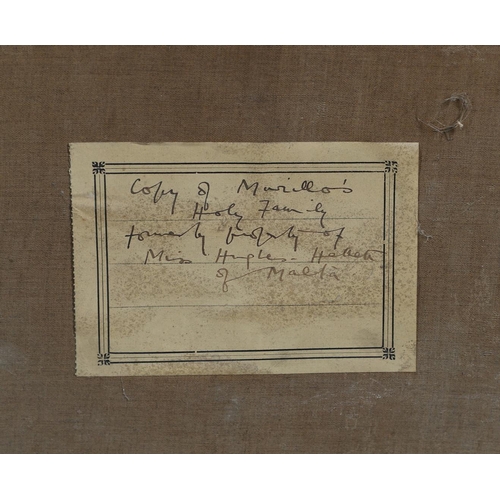 Copy of Murillo's
Holy Family
formerly property of
Miss Hughes-Hallett
of Malta